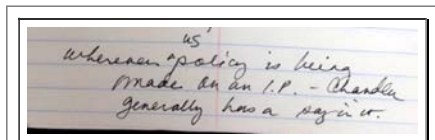 US
whenever policy is being
made on an I.P. - Chandler
generally has a say in it.